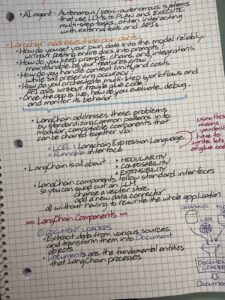 • AI agent: Autonomous/semi-autonomous systems
that use LLMs to PLAN and EXECUTE
multi-step tasks, often interacting
with external tools and APIs.
• LangChain addresses these pain points
• How do you wire your own data into the model reliably
without pasting entire docs into every prompt?
• How do you keep prompts, chains and integrations
maintainable as your features grow?
• How do you handle context limits and costs
while still preserving accuracy?
• How do you orchestrate multi-step workflows and
API calls without fragile glue code?
• Once the app is live, how do you evaluate, debug,
and monitor its behavior?
• LangChain addresses these problems
by standardizing common patterns into
modular, composable components that
can be chained together via
LCEL - LangChain Expression Language
Runnable interface
uses the
means
you don't
have to
write lots
glue code
• LangChain is all about
• MODULARITY
• COMPOSABILITY
• EXTENSIBILITY
• LangChain components follow standard interfaces
so you can swap out an LLM
change a vector store
add a new data connector
all without having to rewrite the whole application
= LangChain Components =
DOCUMENT LOADERS
• Extract data from various sources
and transform them into Document
objects
• Documents are the fundamental entities
that LangChain processes
DOCUMENT
LOADER